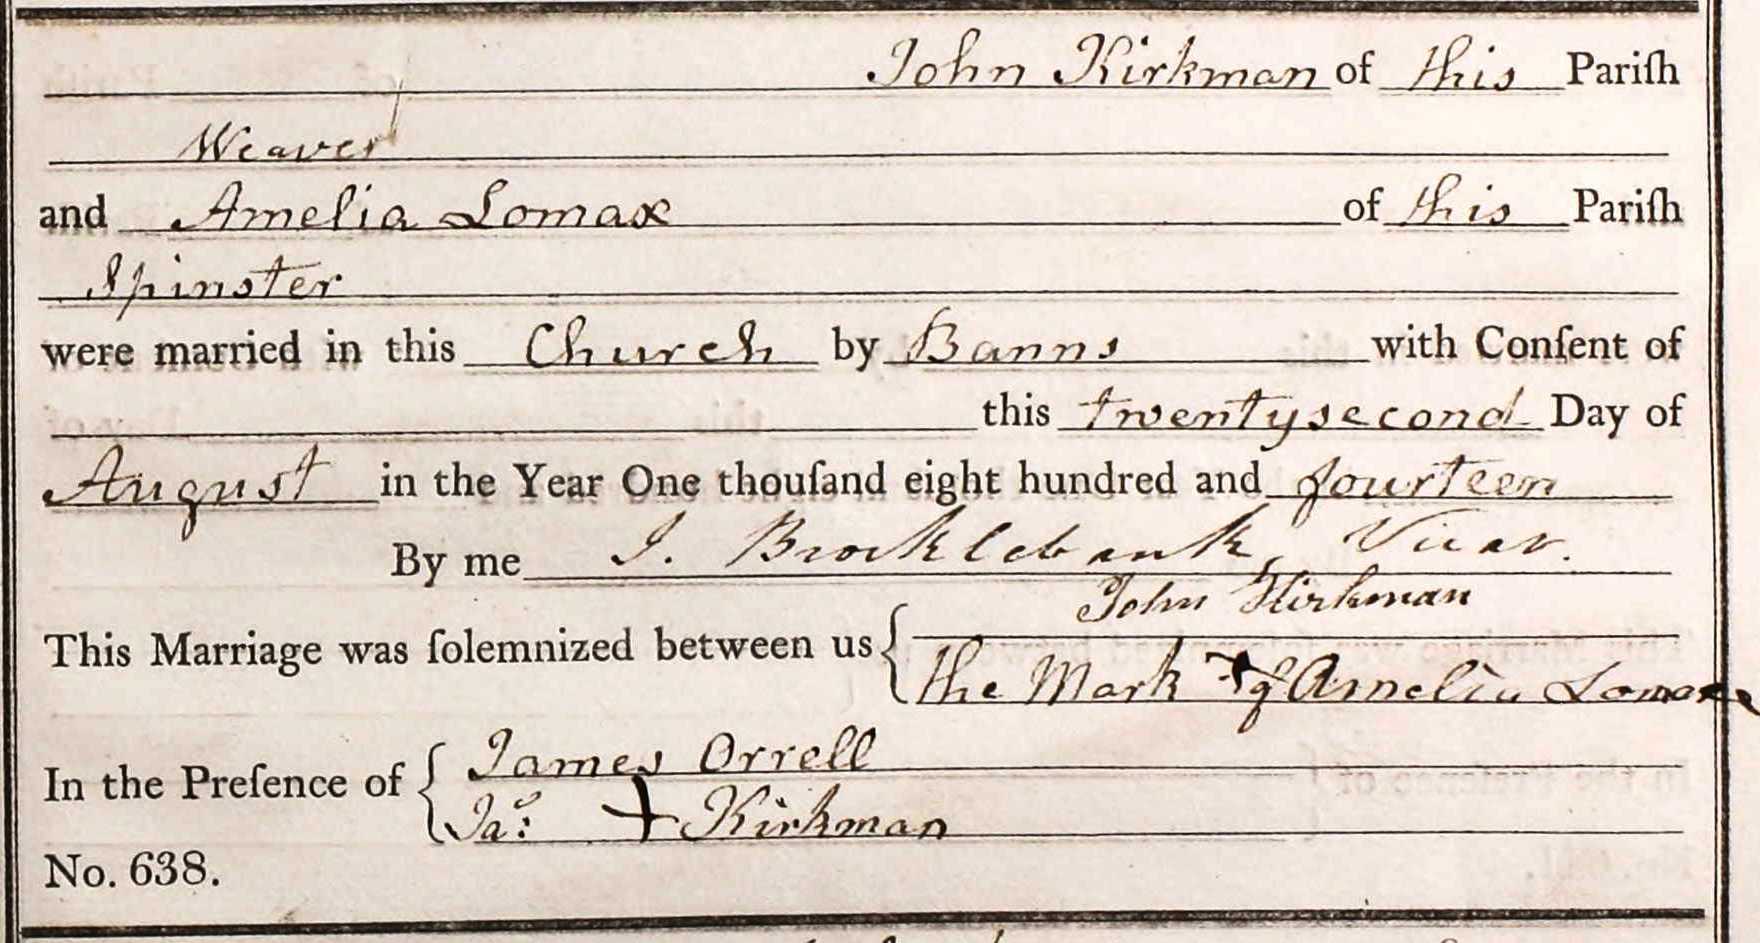 John Kirkman of this Pariſh
Weaver
and Amelia Lomax of this Pariſh
Spinster
were married in this Church by Banns with Conſent of
this twentysecond Day of
August in the Year One thouſand eight hundred and fourteen
By me J. Brocklebank, Vicar.
John Kirkman
This Marriage was ſolemnized between us {
the Mark + of Amelia Lomax
James Orrell
In the Preſence of {
Jas: + Kirkman
No. 638.